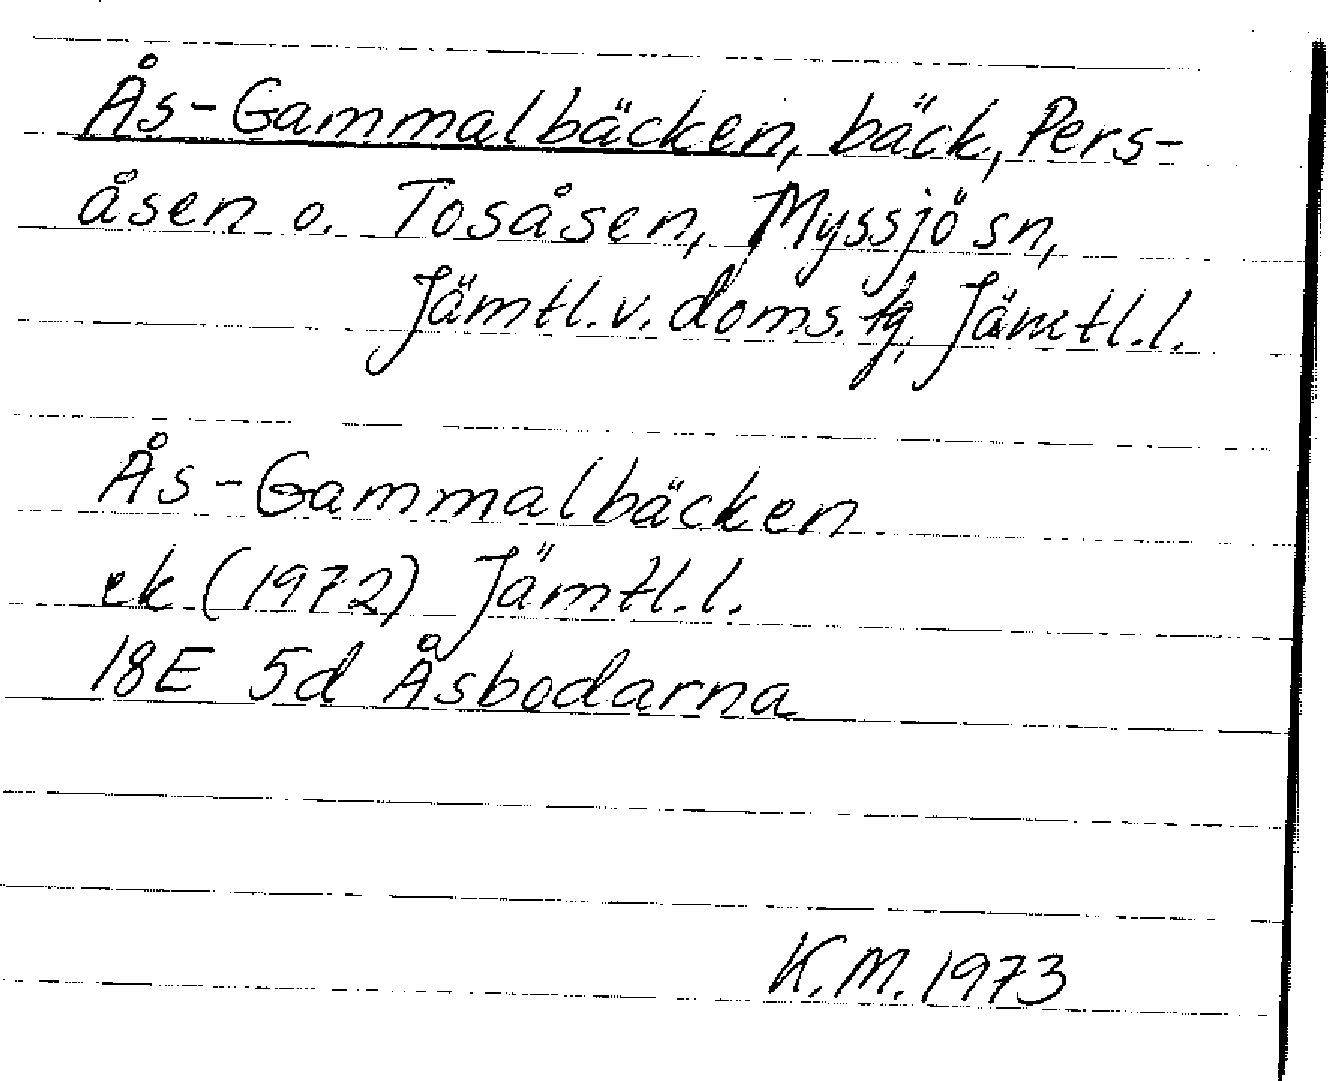 Ås-Gammalbäcken, bäck, Pers-
åsen o. Tosåsen, Myssjö sn,
Jämtl.v.doms.tg, Jämtl.l.
Ås-Gammalbäcken
ek (1972) Jämtl.l.
18E 5d Åsbodarna
K.M. 1973